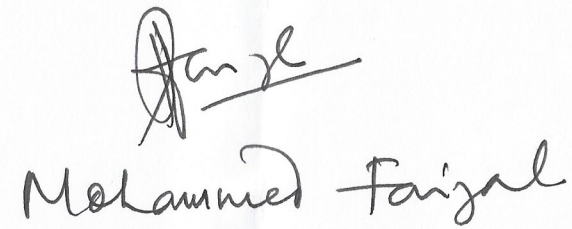 Mohammed Faizal